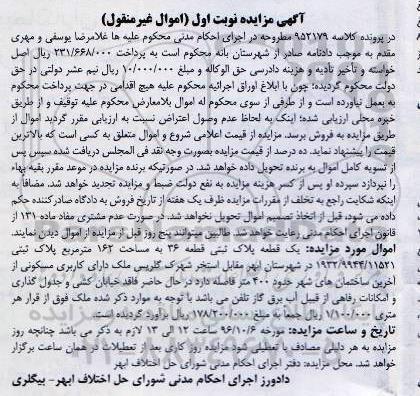 آگهی مزایده نوبت اول (اموال غیرمنقول)
در پرونده کلاسه ۹۵۲۱۷۹ مطروحه در اجرای احکام مدنی محکوم علیه ها غلامرضا یوسفی و مهری
مقدم به موجب دادنامه صادر از شهرستان بانه محکوم است به پرداخت ۲۳۱/۶۶۸/۰۰۰ ریال اصل
خواسته و تأخیر تادیه و هزینه دادرسی حق الوکاله و مبلغ ۱۰/۰۰۰/۰۰۰ ریال نیم عشر دولتی در حق
دولت محکوم گردیده؛ چون با ابلاغ اوراق اجرائیه محکوم علیه هیچ اقدامی در جهت پرداخت محکوم
به بعمل نیاورده است و از طرفی از سوی محکوم له اموال بلامعارض محکوم علیه توقیف و از طریق
خبره محلی ارزیابی شده؛ اینک به لحاظ عدم وصول اعتراض نسبت به ارزیابی مقرر گردید اموال از
طریق مزایده به فروش برسد. مزایده از قیمت اعلامی شروع و اموال متعلق به کسی است که بالاترین
قیمت را پیشنهاد نماید. ده درصد از قیمت مزایده بصورت وجه نقد فی المجلس دریافت شده سپس پس
از تسویه کامل اموال به برنده تحویل داده خواهد شد. در صورتیکه برنده مزایده در موعد مقرر بقیه بهاء
را نپردازد سپرده او پس از کسر هزینه مزایده به نفع دولت ضبط و مزایده تجدید خواهد شد. مضافاً به
اینکه شکایت راجع به تخلف از مقررات مزایده ظرف یک هفته از تاریخ فروش به دادگاه صادرکننده حکم
داده می شود، قبل از اتخاذ تصمیم اموال تحویل نخواهد شد. در صورت عدم مشتری مفاد ماده ۱۳۱ از
قانون اجرای احکام مدنی رعایت خواهد شد. طالبین میتوانند پنج روز قبل از مزایده از اموال دیدن نمایند.
اموال مورد مزایده: یک قطعه پلاک ثبتی قطعه ۳۶ به مساحت ۱۶۲ مترمربع پلاک ثبتی
۱۹۳۲/۹۹۴۴/۱۱۵۲۱ در شهرستان ابهر مقابل استخر شهرک گلریس ملک دارای کاربری مسکونی از
آخرین ساختمان های شهر حدود ۴۰۰ متر فاصله دارد در حال حاضر فاقد خیابان کشی و جدول گذاری
و امکانات رفاهی از قبیل آب برق گاز تلفن می باشد با توجه به موارد ذکر شده ملک فوق از قرار هر
متری ۱/۱۰۰/۰۰۰ ریال جمعاً به مبلغ ۱۷۸/۲۰۰/۰۰۰ ریال برآورد گردیده است.
تاریخ و ساعت مزایده: مورخه ۹۶/۱۰/۶ ساعت ۱۲ الی ۱۳ لازم به ذکر می باشد چنانچه روز
مزایده به هر دلیلی مصادف با تعطیلی شود مزایده روز کاری بعد از تعطیلات در همان ساعت برگزار
خواهد شد. محل مزایده: دفتر اجرای احکام مدنی شورای حل اختلاف ابهر
دادورز اجرای احکام مدنی شورای حل اختلاف ابهر- بیگلری